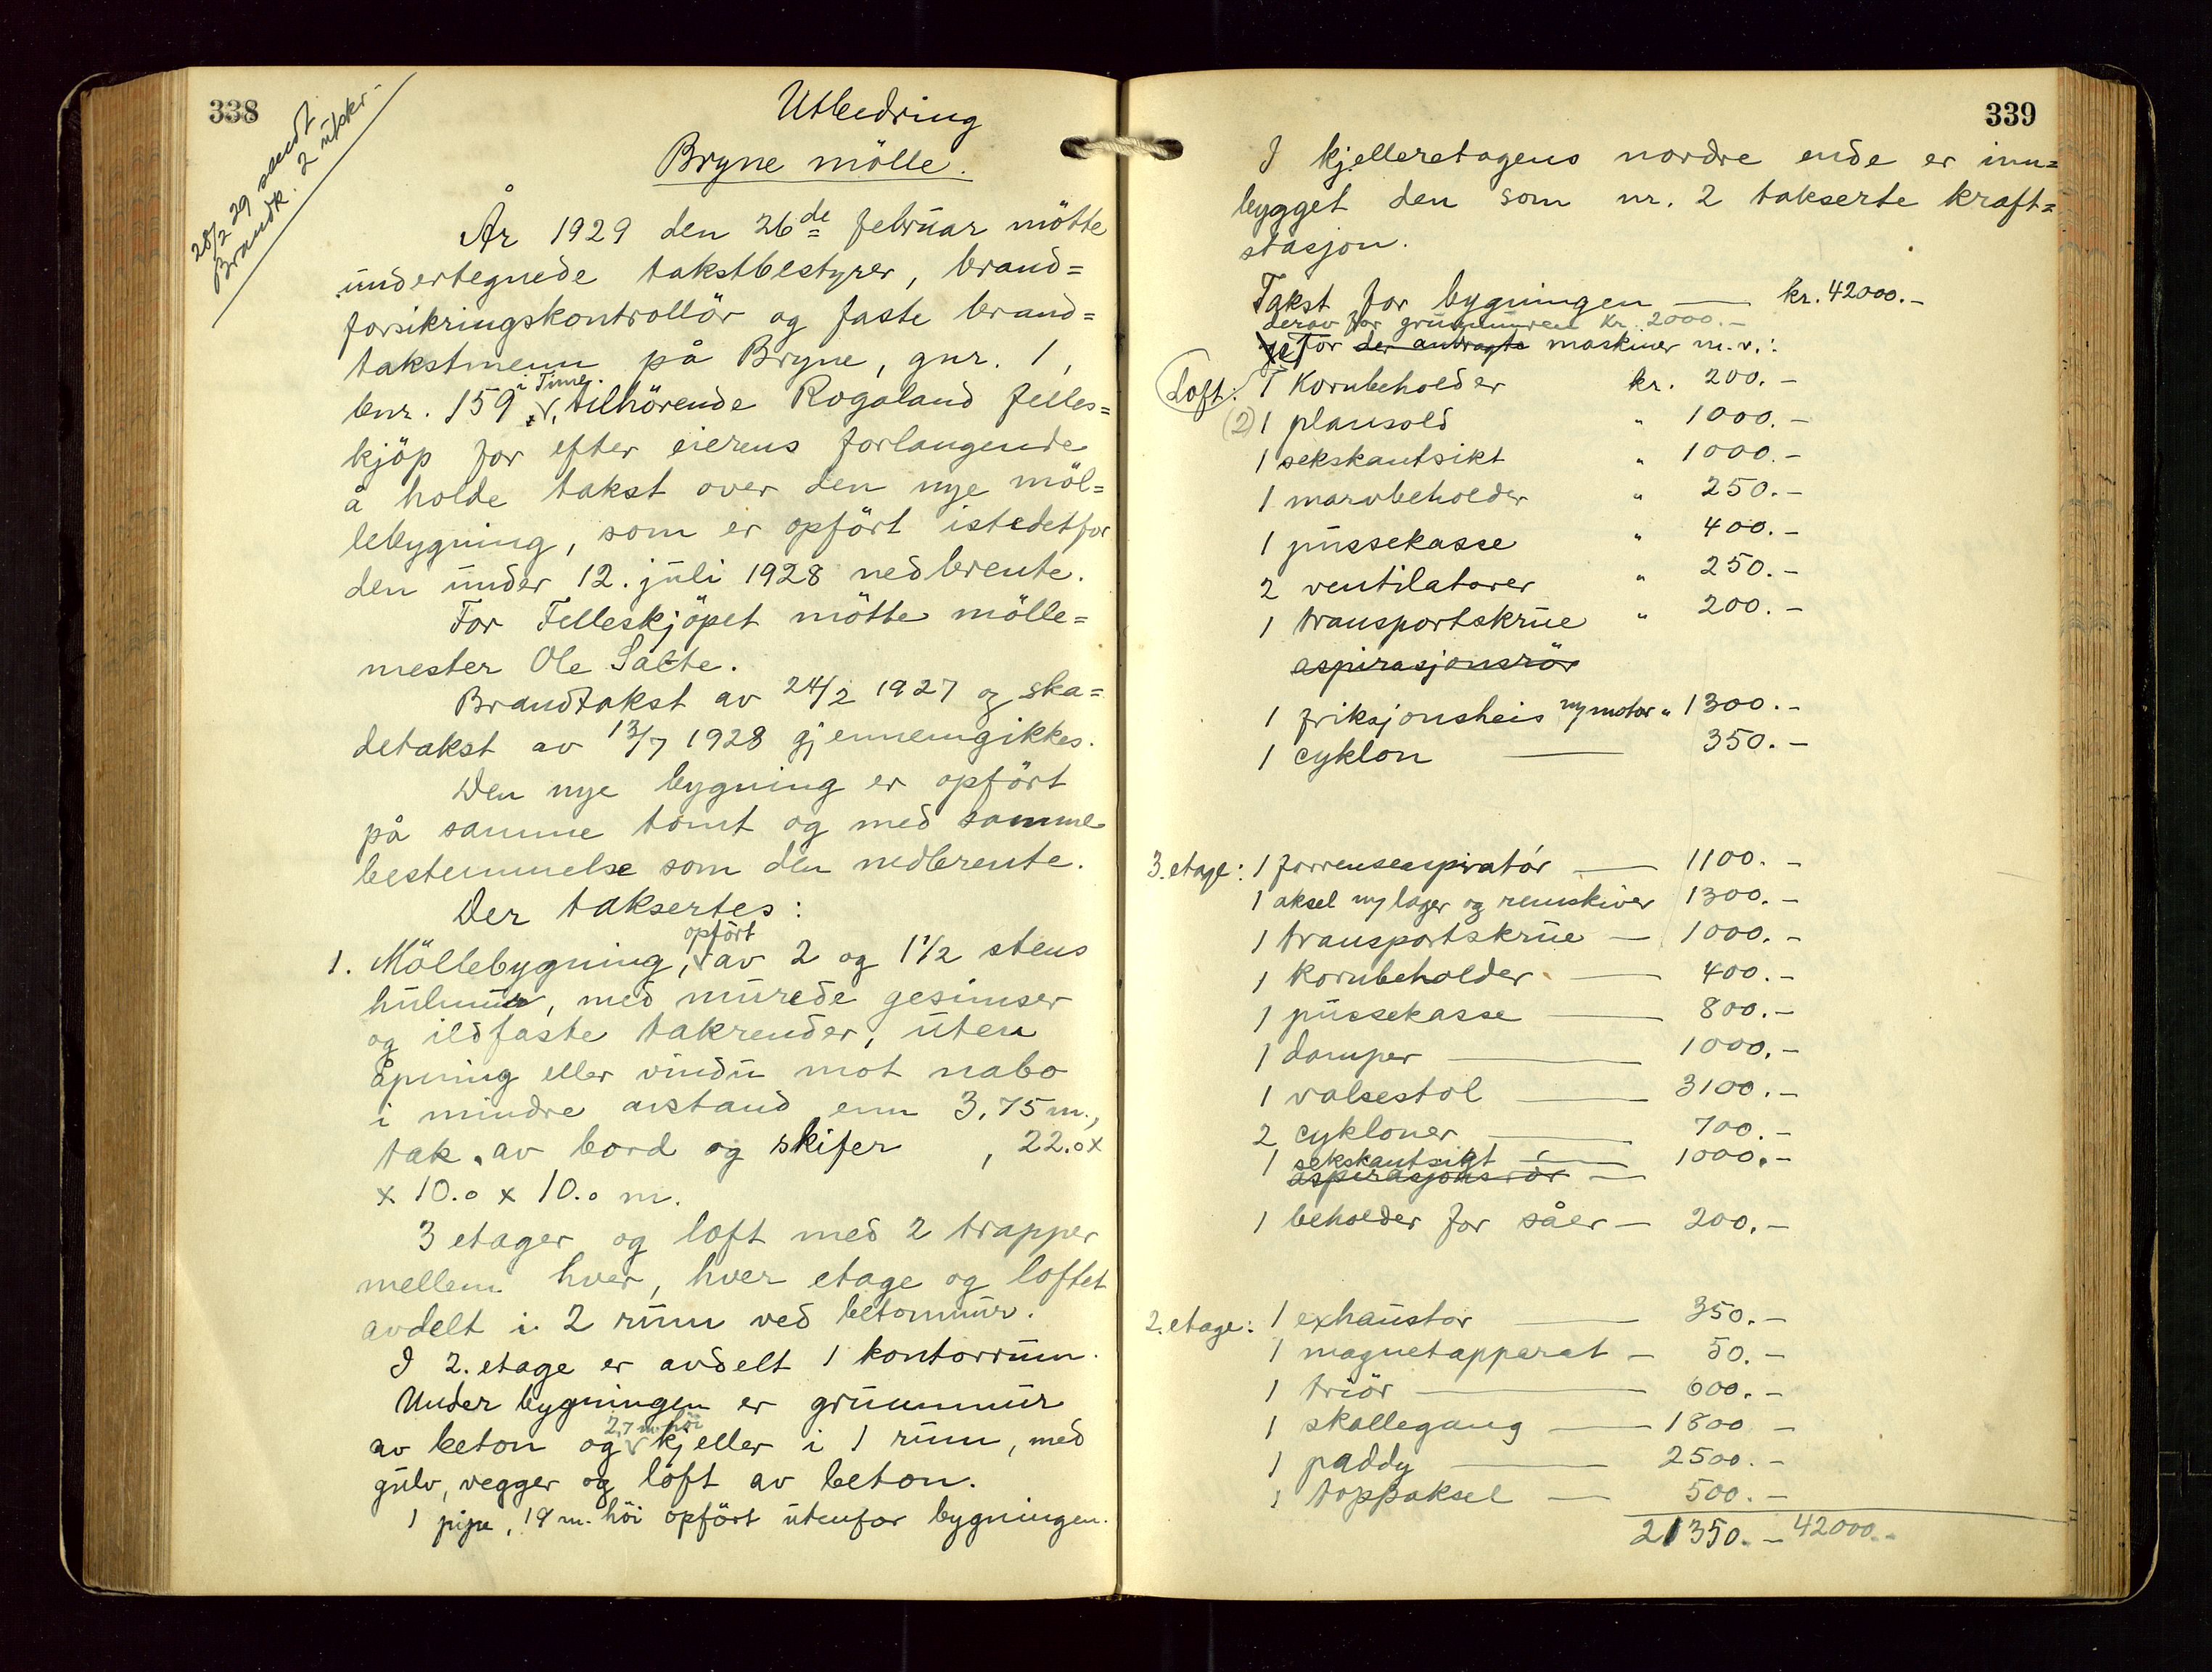 338
28/2 29 sendt
Brandk. 2 utskr.
Utbedring
Bryne mölle.
År 1929 den 26de februar mötte
undertegnede takstbestyrer, brand=
forsikringskontrollör og faste brand=
takstmenn på Bryne, gnr. 1,
bnr. 159 i Time, tilhörende Rogaland Felles=
kjöp for efter eierens forlangende
å holde takst over den nye möl=
lebygning, som er opfört istedetfor
den under 12. juli 1928 nedbrente.
For Felleskjöpet mötte mölle=
mester Ole Salte.
Brandtakst av 24/2 1927 og ska=
detakst av 13/7 1928 gjennemgikkes.
Den nye bygning er opfört
på samme tomt og med samme
bestemmelse som den nedbrente.
Der taksertes:
1. Möllebygning, opfört av 2 og 1½ stens
hulmur, med murede gesimser
og ildfaste takrender, uten
åpning eller vindu mot nabo
i mindre avstand enn 3,75 m.,
tak av bord og skifer , 22.0 x
x 10.0 x 10.0 m.
3 etager og loft med 2 trapper
mellem hver, hver etage og loftet
avdelt i 2 rum ved betonmur.
I 2. etage er avdelt 1 kontorrum.
Under bygningen er grunnmur
av beton og 2,7 m. höi kjeller i 1 rum, med
gulv, vegger og loft av beton.
1 pipe, 19 m. höi opfört utenfor bygningen.
339
I kjelleretagens nordre ende er inn=
bygget den som nr. 2 takserte kraft=
stasjon.
Takst for bygningen — kr. 42000.-
derav for grunnmuren kr. 2000.-
For der anbragte maskiner m.v.:
Loft: 1 Kornbeholder kr. 200.-
(2) 1 plansold " 1000.-
1 sekskantsikt " 1000.-
1 marvbeholder " 250.-
1 pussekasse " 400.-
2 ventilatorer " 250.-
1 transportskrue " 200.-
aspirasjonsrör
1 friksjonsheis m/motor " 1300.-
1 cyklon — 350.-
3. etage: 1 forrenseaspiratör — 1100.-
1 aksel m/lager og remskiver 1300.-
1 transportskrue — 1000.-
1 kornbeholder — 400.-
1 pussekasse — 800.-
1 damper — 1000.-
1 valsestol — 3100.-
2 cykloner — 700.-
1 sekskantsigt — 1000.-
aspirasjonsrör —
1 beholder for såer — 200.-
2. etage: 1 exhaustor — 350.-
1 magnetapparat — 50.-
1 triör — 600.-
1 skallegang — 1800 -
1 paddy — 2500.-
1 toppaksel — 500.-
21350.- 42000.-